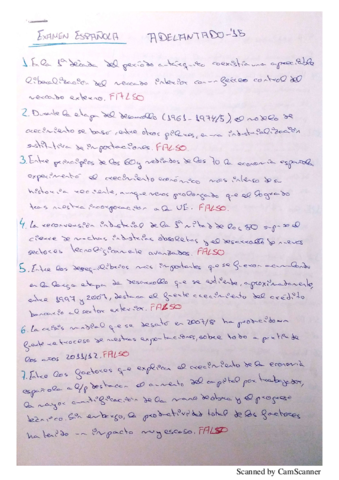 EXAMEN ESPAÑOLA ADELANTADO-15
1. En la 1ª década del período autárquico coexistió una apreciable
liberalización del mercado interior con férreo control del
mercado externo. FALSO
2. Durante la etapa del desarrollo (1961-1974/5) el modelo de
crecimiento se basó, sobre otros pilares, en una industrialización
sustitutiva de importaciones FALSO
3. Entre principios de los 60 y mediados de los 70 la economía española
experimentó el crecimiento económico más intenso de su
historia reciente, aunque menos prolongado que el logrado
tras nuestra incorporación a la UE. FALSO.
4. La reconversión industrial de la 1ª mitad de los 80 supuso el
cierre de muchas industrias obsoletas y el desarrollo de nuevos
sectores tecnológicamente avanzados. FALSO.
5. Entre los desequilibrios más importantes que se fueron acumulando
en la larga etapa de desarrollo que se extiende, aproximadamente,
entre 1997 y 2007, destaca el fuerte crecimiento del crédito
bancario al sector exterior. FALSO
6. La crisis mundial que se desató en 2007/8 ha producido un
fuerte retroceso de nuestras exportaciones, sobre todo a partir de
los años 2011/12. FALSO
7. Entre los factores que explican el crecimiento de la economía
española a l/p destacan el aumento del capital por trabajador,
la mayor cualificación de la mano de obra y el progreso
técnico. Sin embargo, la productividad total de los factores
ha tenido un impacto muy escaso. FALSO
Scanned by CamScanner